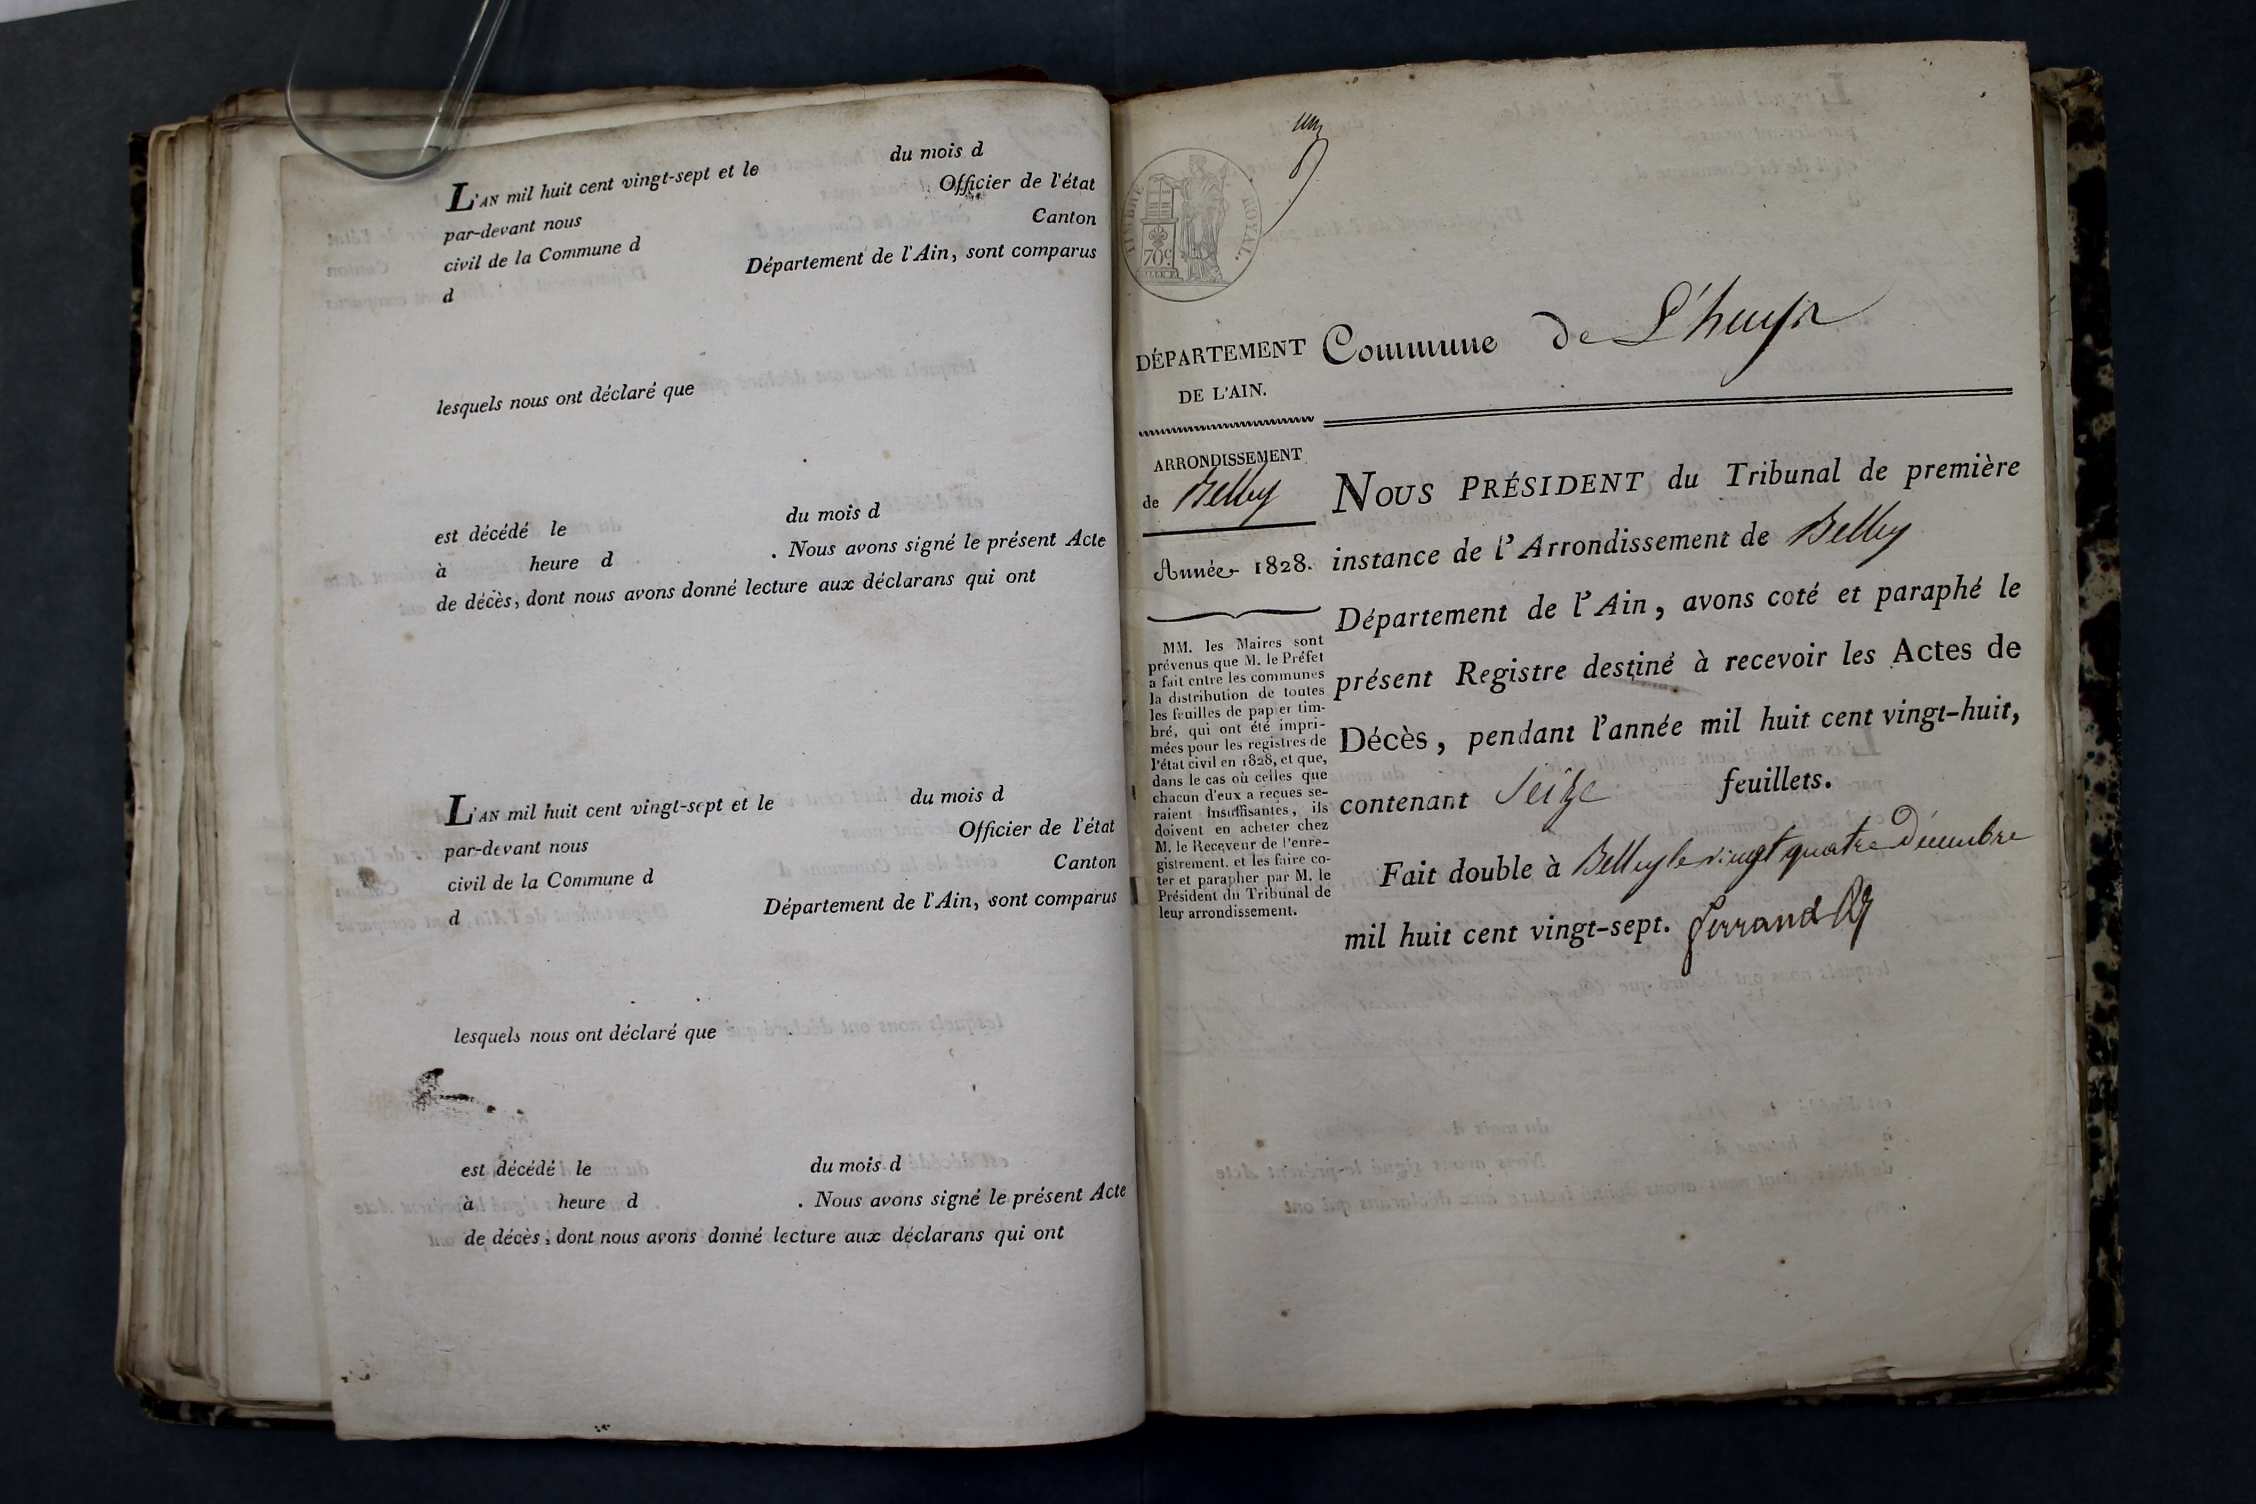 L'AN mil huit cent vingt-sept et le du mois d
par-devant nous Officier de l'état
civil de la Commune d Canton
d Département de l'Ain, sont comparus
lesquels nous ont déclaré que
est décédé le du mois d
à heure d . Nous avons signé le présent Acte
de décès, dont nous avons donné lecture aux déclarans qui ont
L'AN mil huit cent vingt-sept et le du mois d
par-devant nous Officier de l'état
civil de la Commune d Canton
d Département de l'Ain, sont comparus
lesquels nous ont déclaré que
est décédé le du mois d
à heure d . Nous avons signé le présent Acte
de décès, dont nous avons donné lecture aux déclarans qui ont
un
TIMBRE ROYAL.
70 c.
DÉPARTEMENT
DE L'AIN.
ARRONDISSEMENT
de Belley
Année 1828.
MM. les Maires sont
prévenus que M. le Préfet
a fait entre les communes
la distribution de toutes
les feuilles de papier tim-
bré, qui ont été impri-
mées pour les registres de
l'état civil en 1828, et que,
dans le cas où celles que
chacun d'eux a reçues se-
raient insuffisantes, ils
doivent en acheter chez
M. le Receveur de l'enre-
gistrement, et les faire co-
ter et parapher par M. le
Président du Tribunal de
leur arrondissement.
Commune de L'huys
NOUS PRÉSIDENT du Tribunal de première
instance de l'Arrondissement de Belley
Département de l'Ain, avons coté et paraphé le
présent Registre destiné à recevoir les Actes de
Décès, pendant l'année mil huit cent vingt-huit,
contenant Seize feuillets.
Fait double à Belley le vingt quatre Décembre
mil huit cent vingt-sept. Ferrand